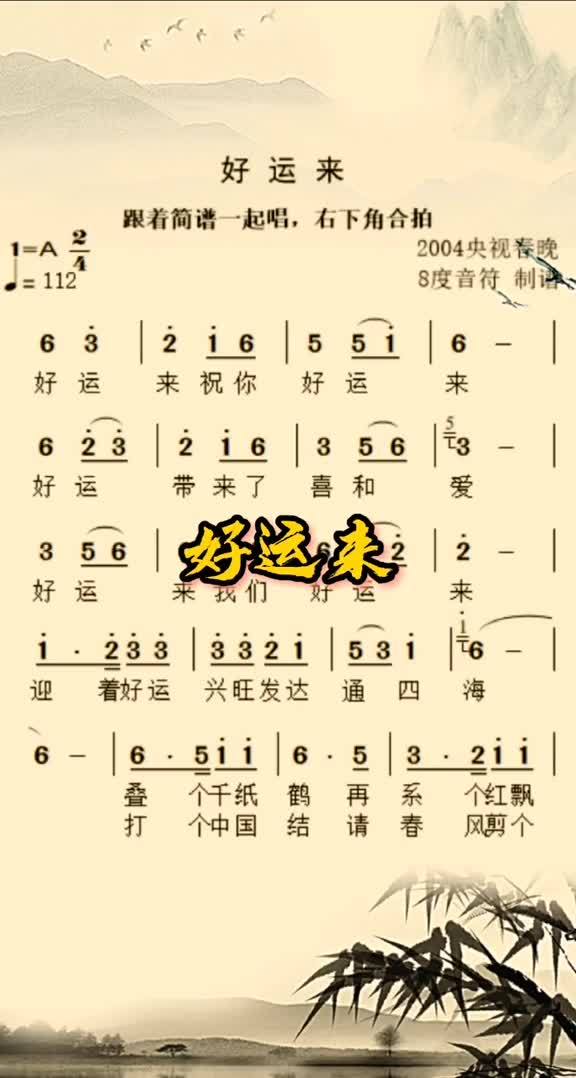 好运来
跟着简谱一起唱，右下角合拍
1=A 2/4
2004央视春晚
♩= 112
8度音符 制谱
6 3̇ | 2̇ 1̇ 6 | 5 5 1̇ | 6 – |
好 运 来 祝 你 好 运 来
6 2̇ 3̇ | 2̇ 1̇ 6 | 3 5 6 | 5 3 – |
好 运 带 来 了 喜 和 爱
3 5 6 2̇ | 2̇ – |
好运来
好 运 来 我 们 好 运 来
1̇ · 2̇ 3̇ 3̇ | 3̇ 3̇ 2̇ 1̇ | 5 3 1̇ | 1̇ 6 – |
迎 着 好 运 兴 旺 发 达 通 四 海
6 – | 6 · 5 1̇ 1̇ | 6 · 5 | 3 · 2 1̇ 1̇ |
叠 个 千 纸 鹤 再 系 个 红 飘
打 个 中 国 结 请 春 风 剪 个